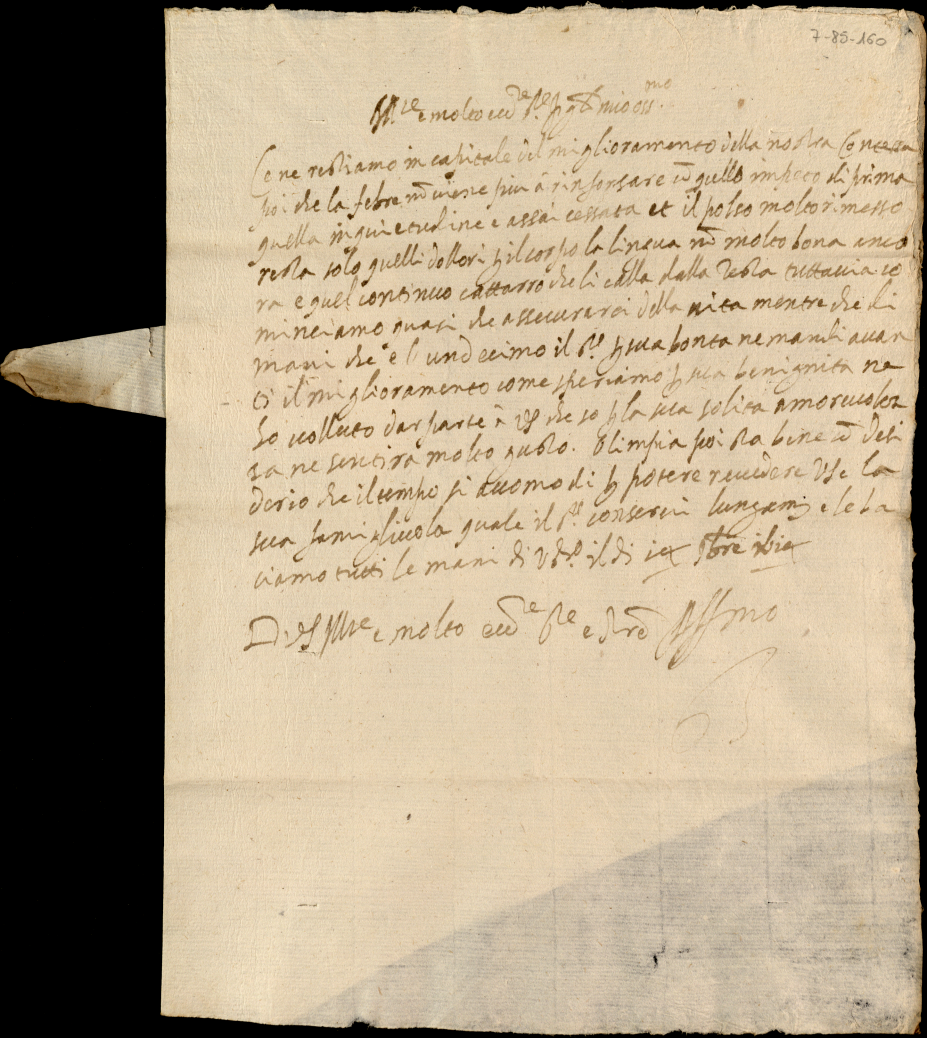 7-85-160
Ill.re e molto ecc.te S.re mio oss.mo
Ce ne restiamo in capitale del miglioramento della nostra Contessa
poi che la febre nō viene piu à rinforsare cō quello impeto di prima
quella inquietudine e assai cessata et il polso molto rimesso
resta solo quelli dollori p il corpo la lingua nō molto bona anco
ra e quel continuo cattarro che li calla dalla testa tuttavia co
minciamo quasi che assecurarci della vita mentre che di
mani che è l undecimo il S.re p sua bonta ne mandi avan
ti il miglioramento come speriamo p sua benignita ne
ho volluto dar parte à VS che so p la sua solita amorevolez
za ne sentira molto gusto. Olimpia poi sta bene cō desi
derio che il tempo si accomodi p potere revedere VS e la
sua famigliuola quale il S.re conservi e le ba
ciamo tutti le mani di il di
Di VS Ill.re e molto ecc.te S.re